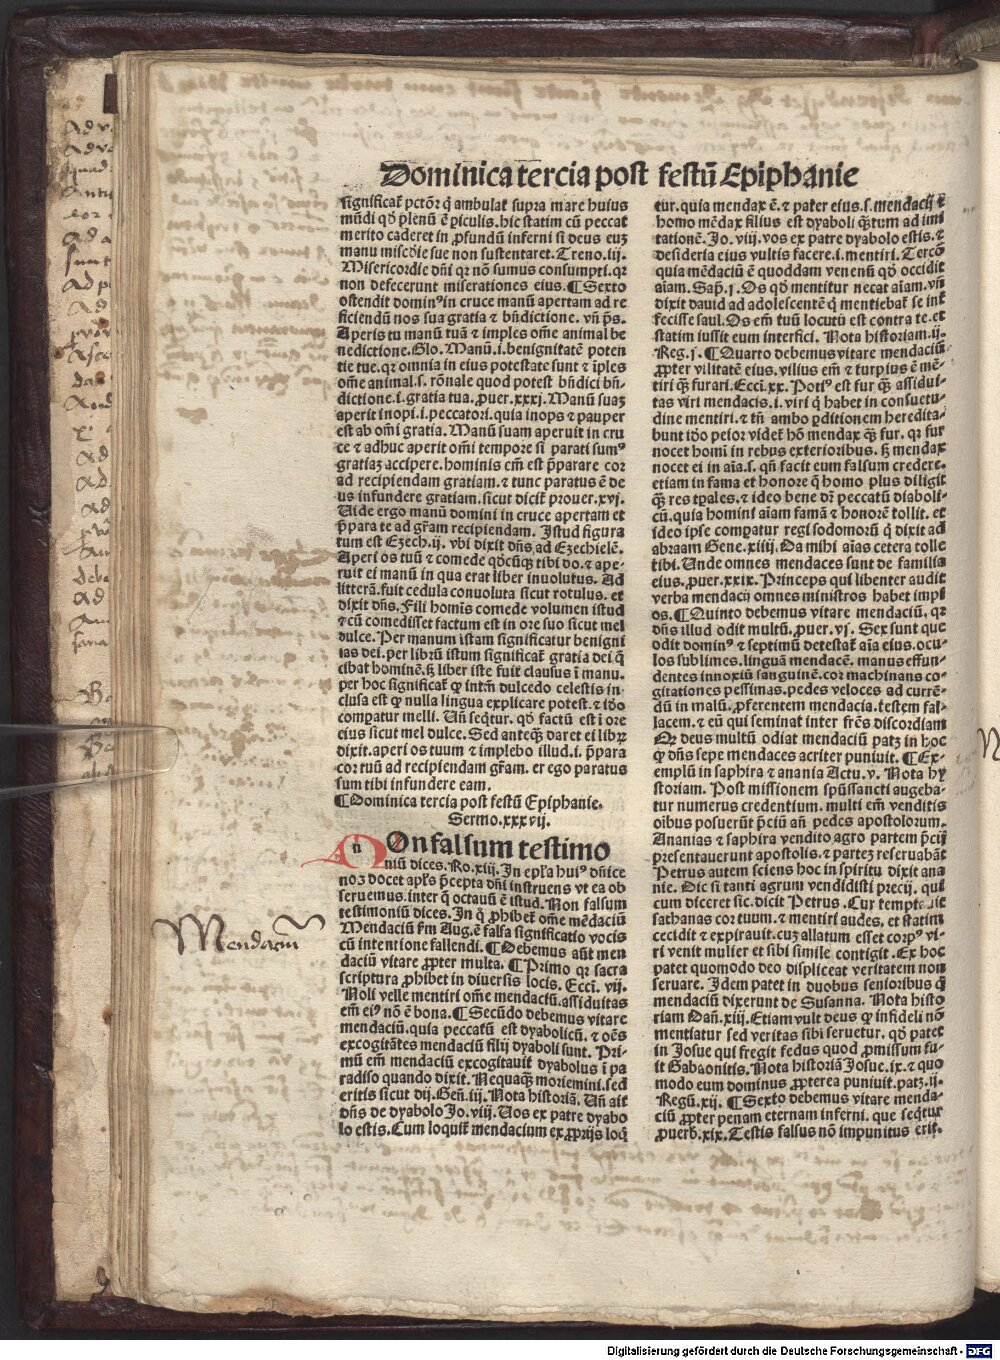 Dominica tercia post festū Epiphanie
significat̄ pctōꝝ q̄ ambulat supra mare huius
mūdi qð plenū ē ꝑiculis. hic statim cū peccat
merito caderet in ꝓfundū inferni si deus euꝫ
manu miscðie sue non sustentaret. Treno. iij.
Misericordie dn̄i qꝛ nō sumus consumpti. qꝛ
non defecerunt miserationes eius. ¶ Sexto
ostendit domin⁹ in cruce manū apertam ad re
ficiendū nos sua gratia ⁊ bn̄dictione. vn̄ ps̄.
Aperis tu manū tuā ⁊ imples om̄e animal be
nedictione. Glo. Manū. i. benignitatē poten
tie tue. qꝛ omnia in eius potestate sunt ⁊ īples
om̄e animal. s. rōnale quod potest bn̄dici bn̄
dictione. i. gratia tua. ꝓuer. xxxj. Manū suaꝫ
aperit inopi. i. peccatori. quia inops ⁊ pauper
est ab om̄i gratia. Manū suam aperuit in cru
ce ⁊ adhuc aperit om̄i tempore si parati sum⁹
gratiaꝫ accipere. hominis em̄ est p̄parare cor
ad recipiendam gratiam. ⁊ tunc paratus ē de
us infundere gratiam. sicut dicit̄ prouer. xvj.
Vide ergo manū domini in cruce apertam et
p̄para te ad gr̄am recipiendam. Istud figura
tum est Ezech. ij. vbi dixit dn̄s ad Ezechielē.
Aperi os tuū ⁊ comede qðcūqꝫ tibi do. ⁊ ape-
ruit ei manū in qua erat liber inuolutus. Ad
litterā. fuit cedula conuoluta sicut rotulus. et
dixit dn̄s. Fili homīs comede volumen istud
⁊ cū comedisset factum est in ore suo sicut mel
dulce. Per manum istam significatur benigni
tas dei. per librū istum significat̄ gratia dei q̄
cibat hominē. sꝫ liber iste fuit clausus ī manu.
per hoc significat̄ ꝙ intm̄ dulcedo celestis in-
clusa est ꝙ nulla lingua explicare potest. ⁊ iðo
compatur melli. Vn̄ seq̄tur. qð factū est ī ore
eius sicut mel dulce. Sed anteqꝫ daret ei librꝫ
dixit. aperi os tuum ⁊ implebo illud. i. p̄para
cor tuū ad recipiendam gr̄am. er ego paratus
sum tibi infundere eam.
¶ Dominica tercia post festū Epiphanie.
Sermo. xxxvij.
NOn falsum testimo
niū dices. Ro. xiij. In epl̄a hui⁹ dn̄ice
noꝫ docet apl̄s p̄cepta dn̄i instruens vt ea ob
seruemus. inter q̄ octauū ē istud. Non falsum
testimoniū dices. In q̄ ꝓhibet̄ om̄e mēdaciū
Mendaciū ẜm Aug. ē falsa significatio vocis
cū intentione fallendi. ¶ Debemus aūt men
daciū vitare ꝓpter multa. ¶ Primo qꝛ sacra
scriptura ꝓhibet in diuersis locis. Ecci. vij.
Noli velle mentiri om̄e mendaciū. assiduitas
em̄ ei⁹ nō ē bona. ¶ Secūdo debemus vitare
mendaciū. quia peccatū est dyabolicū. ⁊ oēs
excogitātes mendaciū filij dyaboli sunt. Pri-
mū em̄ mendaciū excogitauit dyabolus ī pa
radiso quando dixit. Nequaqꝫ moriemini. sed
eritis sicut dij. Gen̄. iij. Nota historiā. Vn̄ ait
dn̄s de dyabolo Jo. viij. Vos ex patre dyabo
lo estis. Cum loquit̄ mendacium ex ꝓprijs loq̄
tur. quia mendax ē. ⁊ pater eius. s. mendacij ⁊
homo mēdax filius est dyaboli qꝫtum ad imi
tationē. Jo. viij. vos ex patre dyabolo estis. ⁊
desideria eius vultis facere. i. mentiri. Tercō
quia mēdaciū ē quoddam venenū qð occidit
aīam. Sap̄. j. Os qð mentitur necat aīam. vn̄
dixit dauid ad adolescentē q̄ mentiebat̄ se int̄
fecisse saul. Os em̄ tuū locutū est contra te. et
statim iussit eum interfici. Nota historiam. ij.
Reg. j. ¶ Quarto debemus vitare mendaciū
ꝓpter vilitatē eius. vilius em̄ ⁊ turpius ē mē-
tiri qꝫ furari. Ecci. xx. Poti⁹ est fur qꝫ assidui-
tas viri mendacis. i. viri q̄ habet in consuetu-
dine mentiri. ⁊ tn̄ ambo ꝑditionem heredita-
bunt iðo peior videt̄ hō mendax qꝫ fur. qꝛ fur
nocet homī in rebus exterioribus. sꝫ mendax
nocet ei in aīa. s. qn̄ facit eum falsum credere.
etiam in fama et honore q̄ homo plus diligit
qꝫ res tꝑales. ⁊ ideo bene dꝛ peccatū diaboli-
cū. quia homini aīam famā ⁊ honorē tollit. et
ideo ipse compatur regi sodomorū q̄ dixit ad
abraam Gene. xiiij. Da mihi aīas cetera tolle
tibi. Unde omnes mendaces sunt de familia
eius. ꝓuer. xxix. Princeps qui libenter audit
verba mendacij omnes ministros habet impi
os. ¶ Quinto debemus vitare mendaciū. qꝛ
dn̄s illud odit multū. ꝓuer. vj. Sex sunt que
odit domin⁹ ⁊ septimū detestat̄ aīa eius. ocu-
los sublimes. linguā mendacē. manus effun-
dentes innoxiū sanguinē. cor machinans co-
gitationes pessimas. pedes veloces ad currē-
dū in malū. ꝓferentem mendacia. testem fal-
lacem. ⁊ eū qui seminat inter fr̄es discordiam
Qꝛ deus multū odiat mendaciū patꝫ in hoc
ꝙ dn̄s sepe mendaces acriter puniuit. ¶ Ex-
emplū in saphira ⁊ anania Actu. v. Nota hy
storiam. Post missionem sp̄ūssancti augeba-
tur numerus credentium. multi em̄ venditis
oibus posuerūt p̄ciū an̄ pedes apostolorum.
Ananias ⁊ saphira vendito agro partem p̄cij
presentauerunt apostolis. ⁊ partez reseruabāt
Petrus autem sciens hoc in spiritu dixit ana
nie. Dic si tanti agrum vendidisti precij. qui
cum diceret sic. dicit Petrus. Cur temptauit
sathanas cor tuum. ⁊ mentiri audes. et statim
cecidit ⁊ expirauit. cuꝫ allatum esset corp⁹ vi-
ri venit mulier et sibi simile contigit. Ex hoc
patet quomodo deo displiceat veritatem non
seruare. Idem patet in duobus senioribus q̄
mendaciū dixerunt de Susanna. Nota histo
riam Dan̄. xiij. Etiam vult deus ꝙ infideli nō
mentiatur sed veritas sibi seruetur. qð patet
in Josue qui fregit fedus quod ꝓmissum fu-
it Gabaonitis. Nota historiā Josue. ix. ⁊ quo
modo eum dominus ꝓpterea puniuit. patꝫ. ij.
Regū. xij. ¶ Sexto debemus vitare menda-
ciū ꝓpter penam eternam inferni. que seq̄tur
ꝓuerb. xix. Testis falsus nō impunitus erit.
Mendaciū
Digitalisierung gefördert durch die Deutsche Forschungsgemeinschaft - DFG